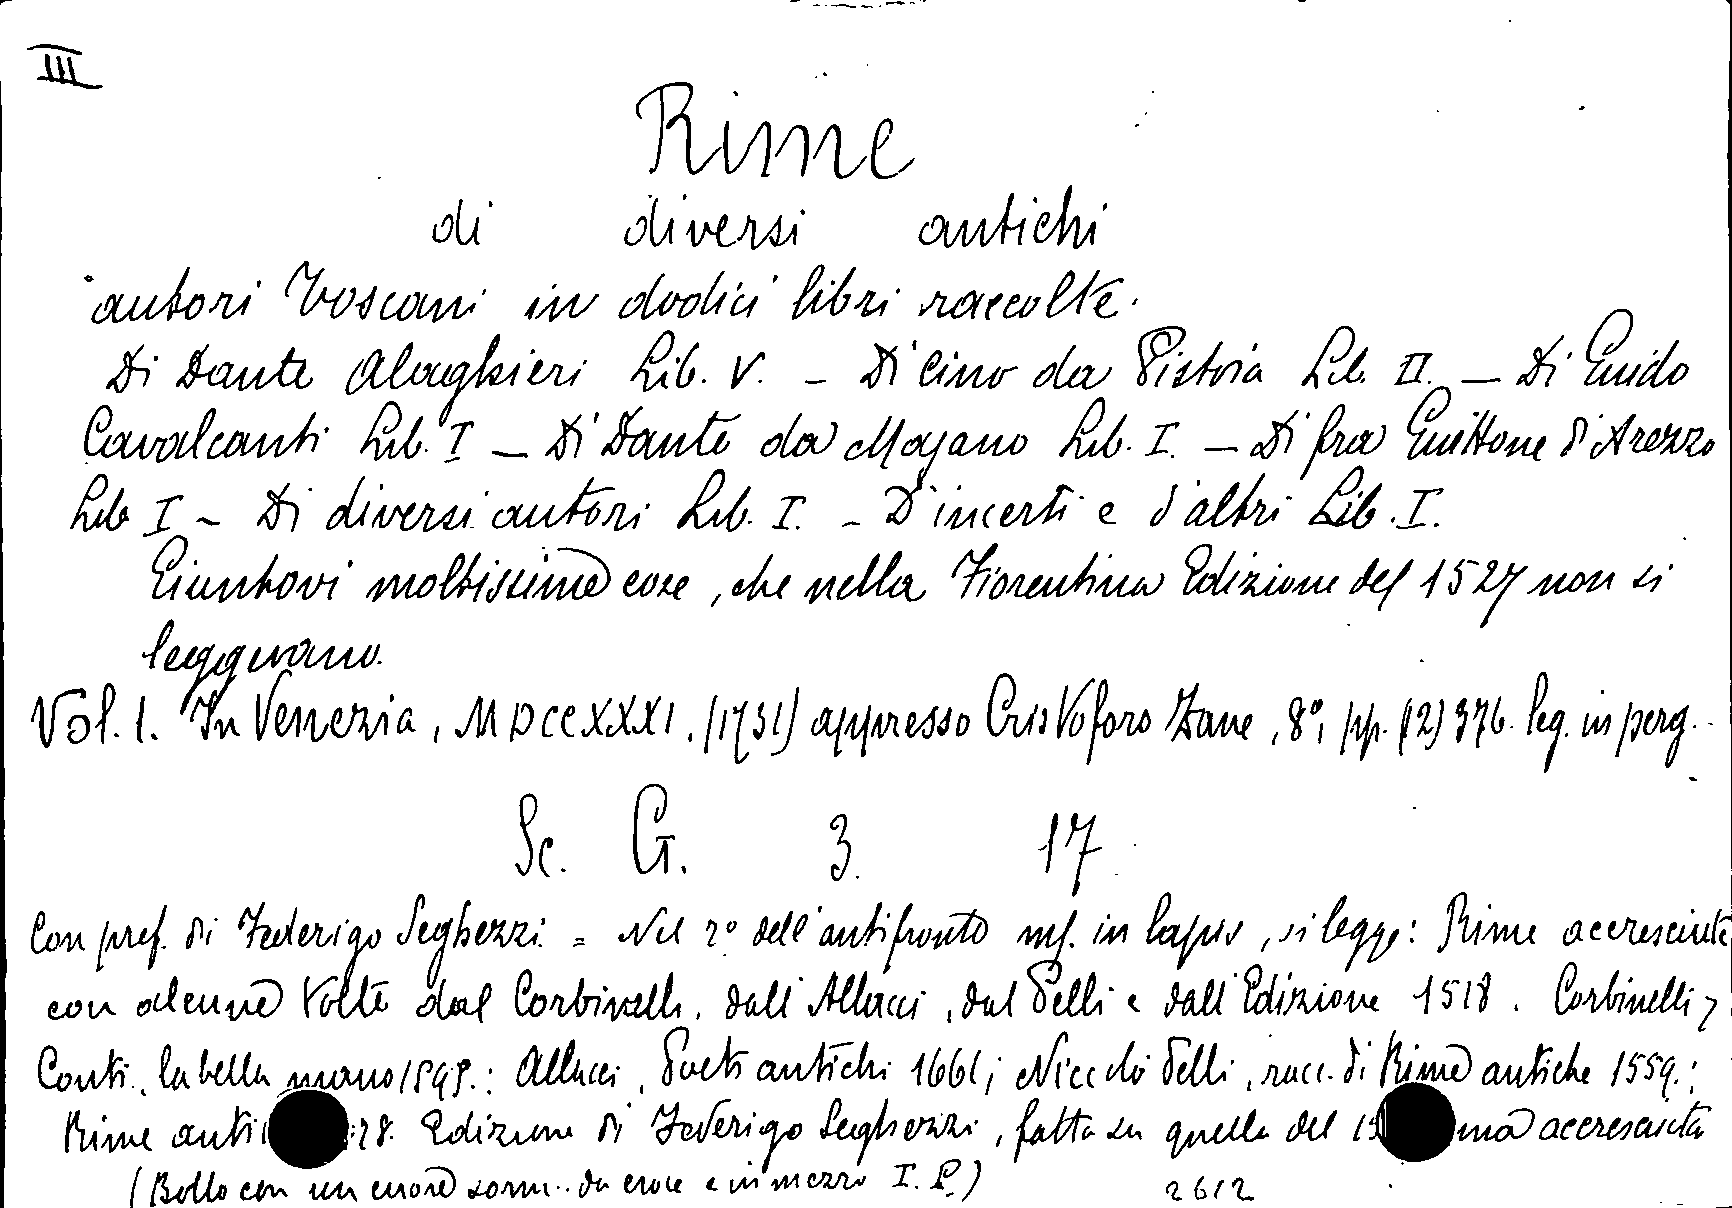 III
Rime
di diversi antichi
autori Toscani in dodici libri raccolte.
Di Dante Alaghieri Lib. V. – Di Cino da Pistoia Lib. II. – Di Guido
Cavalcanti Lib. I – Di Dante da Majano Lib. I. – Di fra Guittone d'Arezzo
Lib I – Di diversi autori Lib. I. – D'incerti e d'altri Lib. I.
Giuntovi moltissime cose, che nella Fiorentina Edizione del 1527 non si
leggevano.
Vol. 1. In Venezia, MDCCXXXI. (1731) appresso Cristoforo Zane, 8°, pp. (12) 376. leg. in perg.
Sc. G. 3 17
Con pref. di Federigo Seghezzi. = Nel r° dell'antifronte ms. in lapis, si legge: Rime accresciute
con alcune volte dal Corbinelli, dall'Allacci, dal Pilli e dall'Edizione 1518. Corbinelli,
Conti, la bella mano 1595.: Allacci, Poeti antichi 1661; Niccolò Pilli, racc. di Rime antiche 1559.;
Rime anti 28. Edizione di Federigo Seghezzi, fatta su quella del ma accresciuta
(Bollo con un cuore sorm.. da croce e in mezzo I. P.) 2612